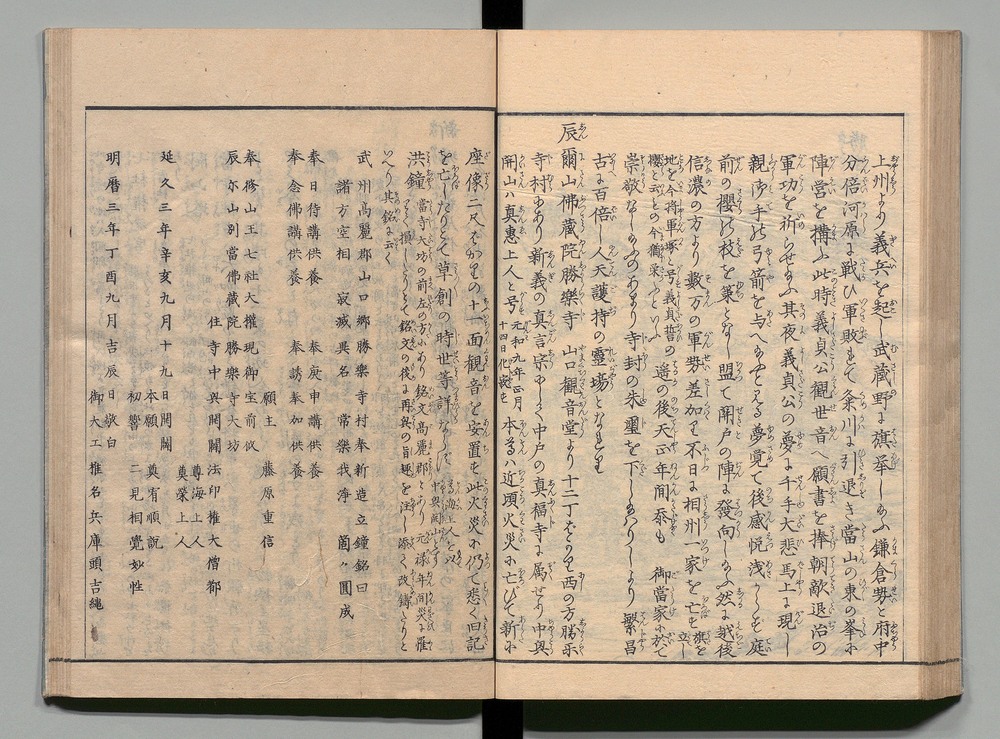 上州より義兵を起し武蔵野に旗挙し給ふ鎌倉勢と府中
分倍河原に戦ひ軍敗れて久米川に引退き當山の東の峯に
陣営を構ふ此時義貞公観世音へ願書を捧朝敵退治の
軍功を祈らせ給ふ其夜義貞公の夢に千手大悲馬上に現し
親御手の弓箭を与へ給ふと見る夢覚て後感悦浅からも庭
前の櫻の枝を策となし盟て関戸の陣に發向し給ふ然に越後
信濃の方より數万の軍勢差加て不日に相州一家を亡も旗を立し
地を今将軍塚と号義貞誓の櫻と云との今猶栄ふといふ
遥の後天正年間忝も 御當家に於て
崇敬なし給ふのあまり寺封の朱璽を下し給ハりしより繁昌
古に百倍し人天護持の靈場となれり
辰爾山佛蔵院勝樂寺 山口觀音堂より十二丁をかり西の方勝樂
寺村にあり新義の真言宗にして中戸の真福寺に属せり中興
開山ハ真惠上人と号元和九年正月十四日化寂も 本尊ハ近頃火災に亡びて新に
座像二尺をかりの十一面観音を安置も此火災に仍て悉く旧記
を亡したりとて草創の時世等詳ならに
洪鐘 當寺大坊の前左の方にあり銘文高麗郡とあり元禄年間災に罹
損しけりとて銘文の後に再興の旨趣を注し添く改鋳たりと
いへり其銘に云く
武州高麗郡山口郷勝樂寺村奉新造立鐘銘曰
諸方空相 寂滅異名 常樂我淨 箇々圓成
奉日待講供養 奉庚申講供養
奉念佛講供養 奉誘奉加供養
願主 藤原重信
奉修山王七社大權現御宝前似
辰尓山別當佛藏院勝樂寺大坊
住寺中興開闢法印権大僧都
延久三年辛亥九月十九日開闢 尊海上人
本願 奠榮上人
初響 奠有順説
二見相覺妙性
明暦三年丁酉九月吉辰日敬白
御大工 椎名兵庫頭吉繩